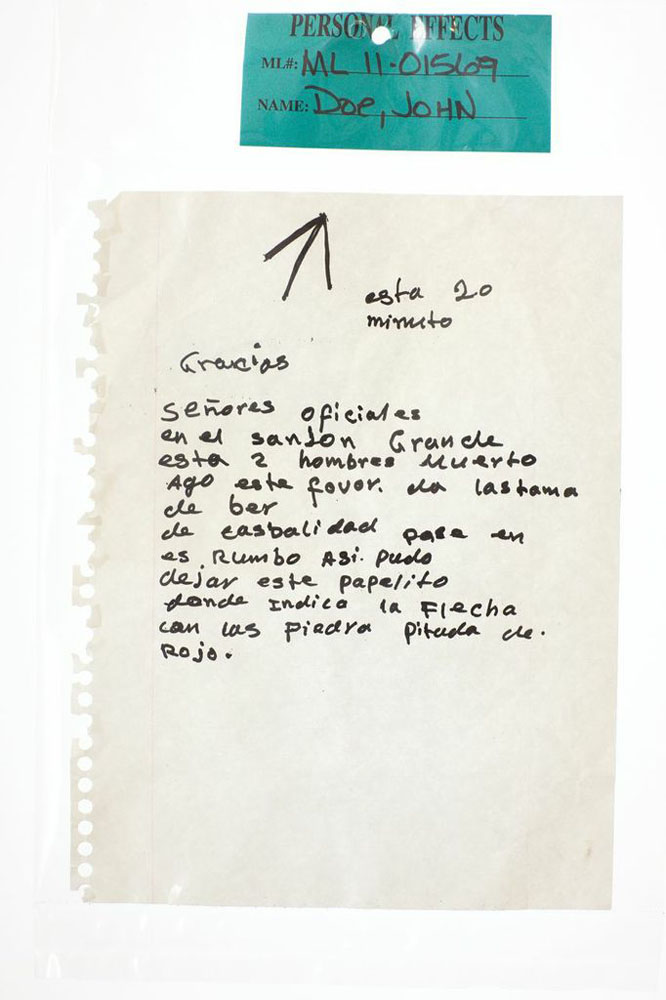 PERSONAL EFFECTS
ML#: ML 11-01569
NAME: Doe, JOHN
esta 20
minuto
Gracias
señores oficiales
en el sanjon Grande
esta 2 hombres Muerto
Ago este favor. da lastama
de ber
de casbalidad pase en
es Rumbo Asi. pudo
dejar este papelito
donde Indica la Flecha
con las Piedra pitada de.
Rojo.